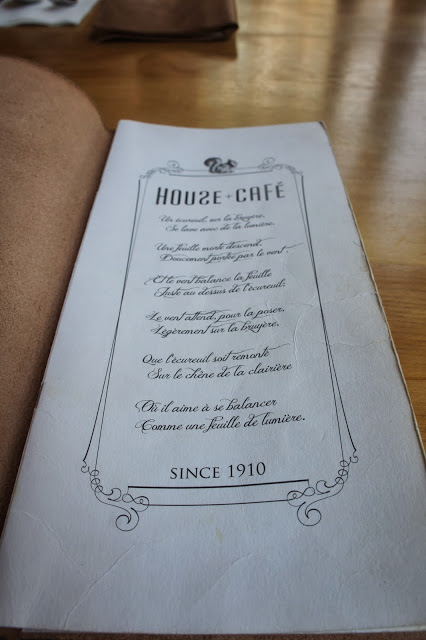 HOUSE + CAFÉ
Un écureuil, sur la bruyère,
Se lave avec de la lumière.
Une feuille morte descend,
Doucement portée par le vent.
Et le vent balance la feuille
Juste au dessus de l'écureuil;
Le vent attend, pour la poser,
Légèrement sur la bruyère,
Que l'écureuil soit remonté
Sur le chêne de la clairière
Où il aime à se balancer
Comme une feuille de lumière.
SINCE 1910